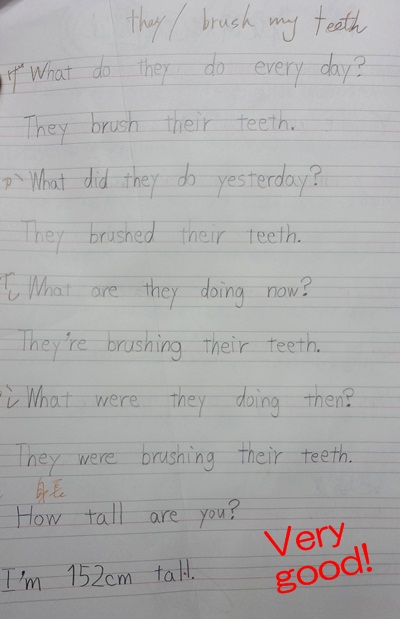 they / brush my teeth
What do they do every day?
They brush their teeth.
What did they do yesterday?
They brushed their teeth.
What are they doing now?
They're brushing their teeth.
What were they doing then?
They were brushing their teeth.
身長
How tall are you?
I'm 152cm tall.
Very
good!